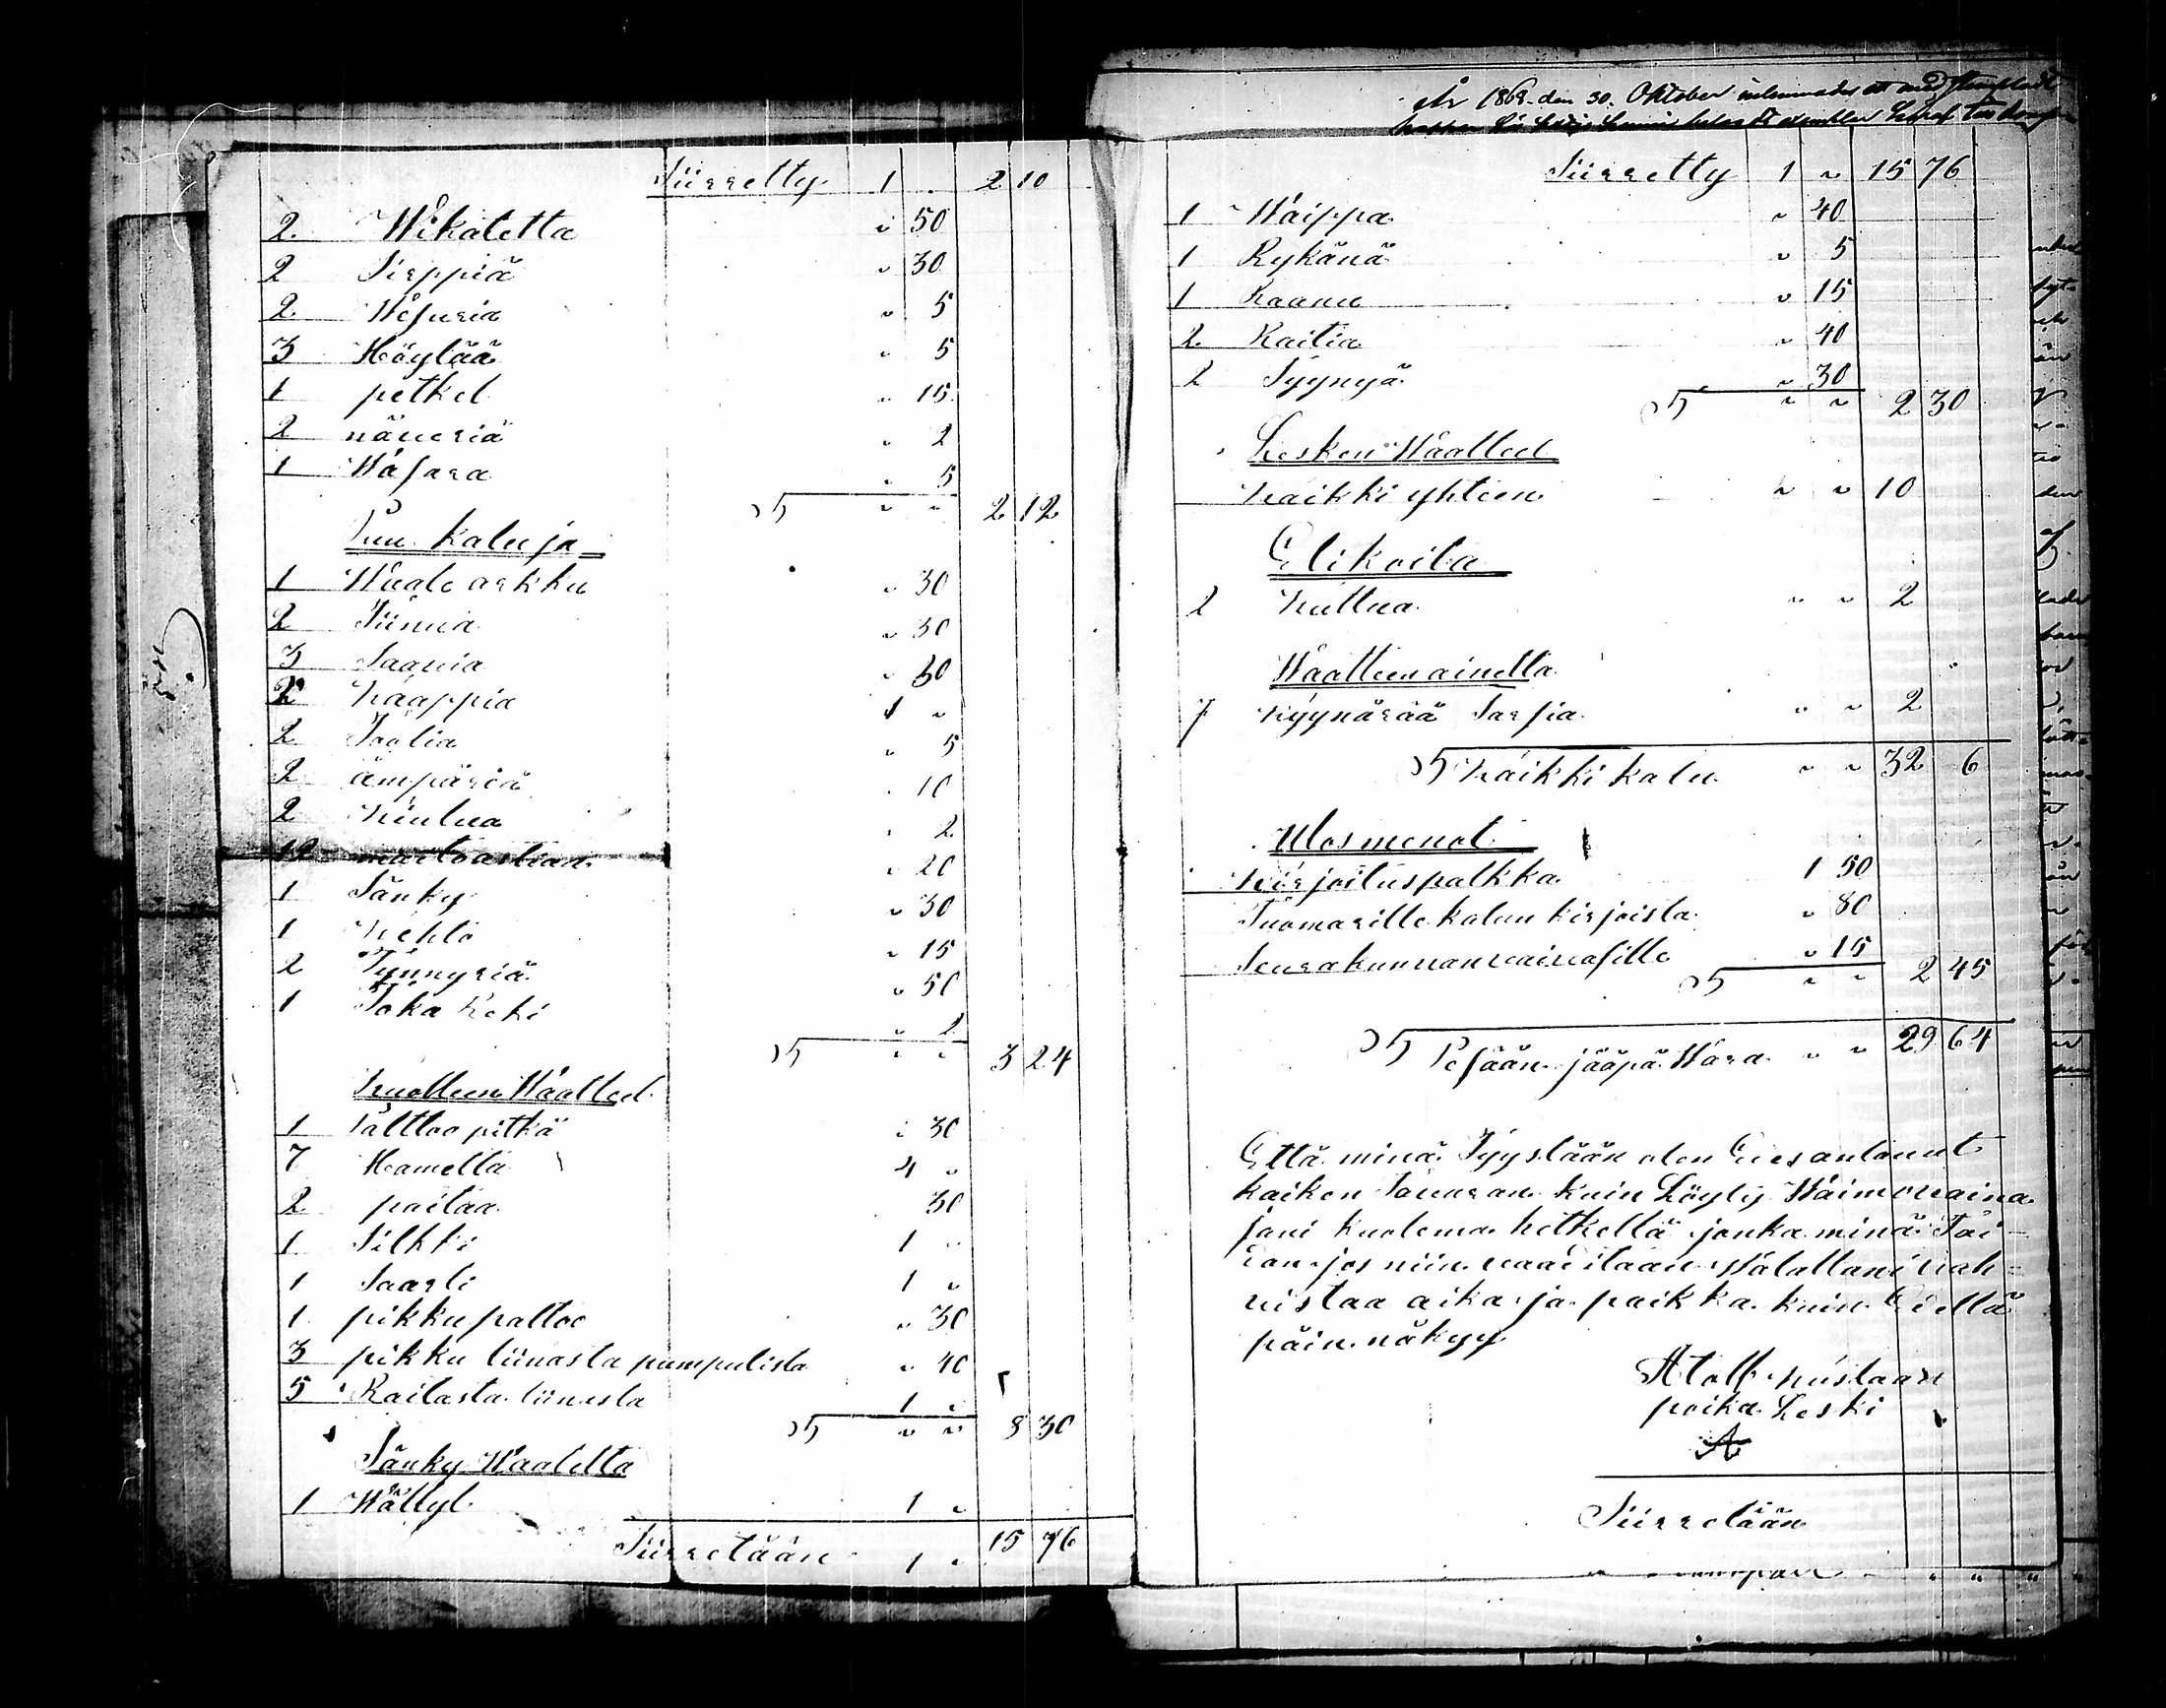 Siirretty 1 2 10
2 Wikatetta " 50
2 Sirppiä " 30
2 Wesuria " 5
3 Höylää " 5
1 petkel " 15
2 näveriä " 2
1 Wasara " 5
" " 2 12
Puu kaluja
1 Waate arkku " 30
2 Tiinua " 30
3 Saavia " 30
2 Kaappia 1 "
2 Toolia " 5
2 ämpäriä " 10
2 Kiulua " 2
12 maitoastiaa " 20
1 Sänky " 30
1 Kehto " 15
2 Tynnyriä " 50
1 Toka Reki " 2
" " 3 24
Kuolleen Waatteet
1 Palttoo pitkä " 30
7 Hametta 4 "
2 paitaa 30
1 Silkki 1 "
1 Saarli 1 "
1 pikku paltoo " 30
3 pikku liinasta pumpulista " 40
5 Raitasta liinasta 1 "
" " 8 30
Sänky Waatetta
1 Wällyt 1 "
Siirretään 1 " 15 76
År 1868 den 30. Oktober
Siirretty 1 " 15 76
1 Waippa " 40
1 Rykänä " 5
1 Raanu " 15
2 Raitia " 40
2 Tyynyä " 30
" " 2 30
Lesken Waatteet
Kaikki yhteen " " 10
Elikoita
2 Kuttua " " 2
Waatteen ainetta
7 Kyynärää Sarsia " " 2
Kaikki kalu " " 32 6
Ulosmenot
Kirjoituspalkka 1 50
Tuomarille kalun kirjoista " 80
Seurakunnan vaivasille " 15
" " 2 45
Pesään jääpä Wara " " 29 64
Että minä Tyystään olen Eies antanut
kaiken Tavaran kuin Löyty Waimovaina
jani kuolema hetkellä jonka minä Tai-
dan jos niin vaaditaan Walallani vah=
vistaa aika ja paikka kuin Edellä
päin näkyy
poika Leski
A
Siirretään